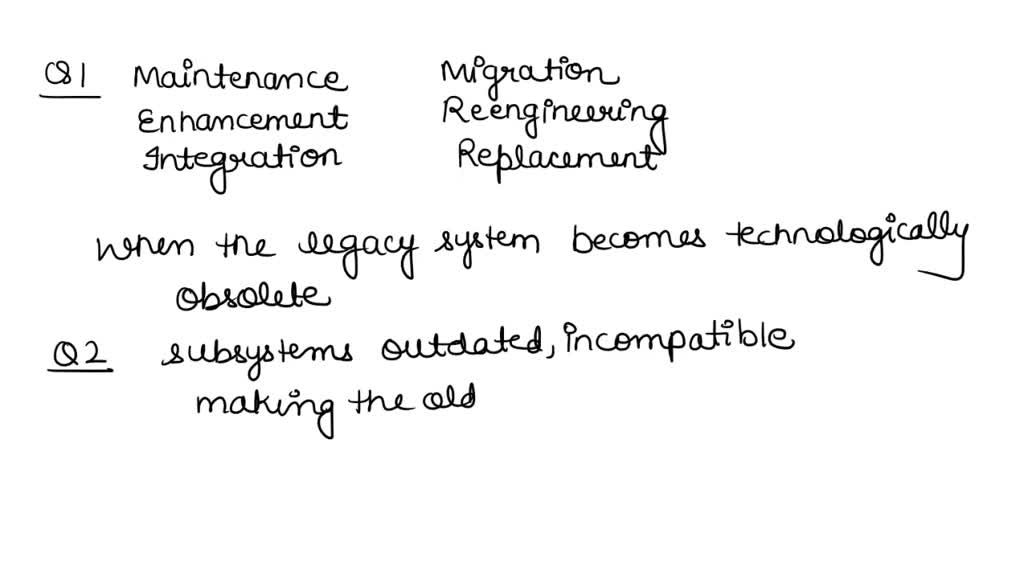 Q1 Maintenance Migration
Enhancement Reengineering
Integration Replacement
When the legacy system becomes technologically
obsolete
Q2 subsystems outdated, incompatible
making the old